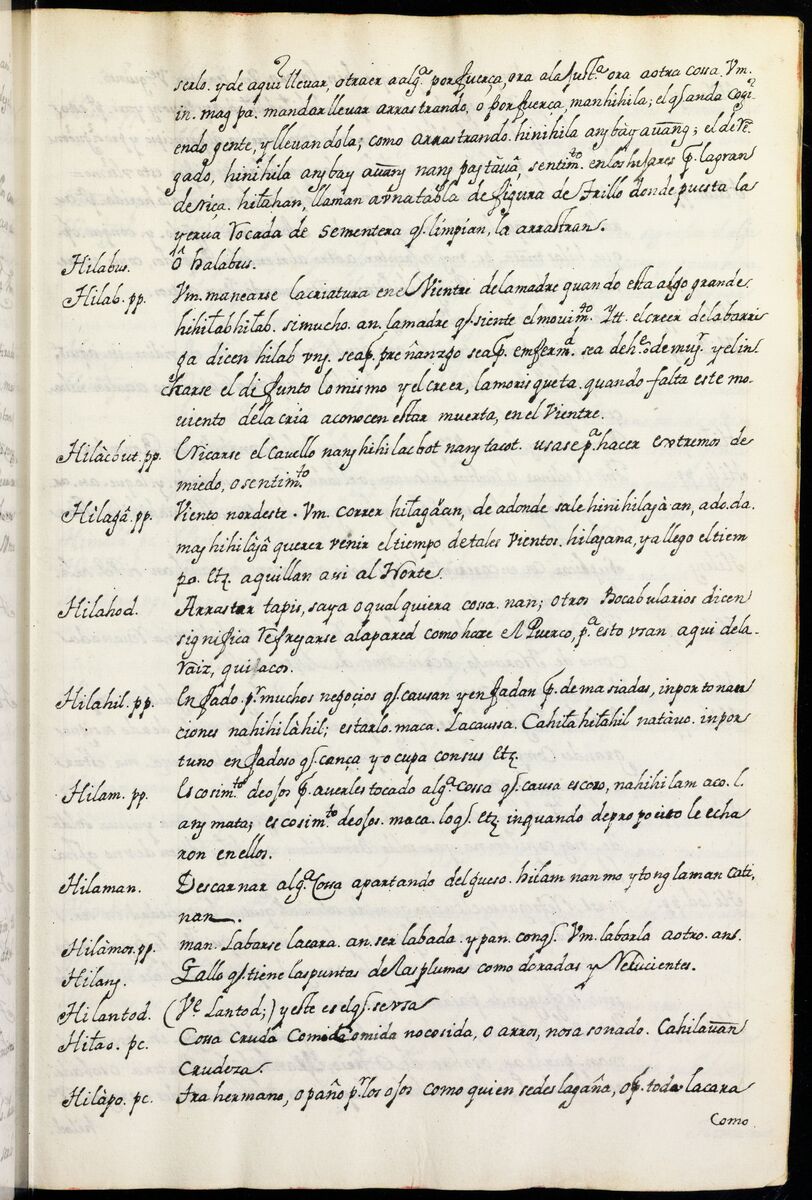 serlo. y de aqui llevar, o traer a algª. por fuerça, ora ala Justª ora a otra cossa. Vm.
in. mag pa. mandar llevar arrastrando, o por fuerça, manhihila; el qe. anda cogi
endo gente, y llevandola; como arrastrando. hinihila ang bày auāng; el de Ve.
gado, hinihila ang bay auāng nang pagtàuâ, sentim.to en los hijares pr. la gran
de riça. hilahan, llaman a vna tabla de figura de Trillo donde puesta la
yerua rocada de sementera qe. limpian, la arrastran.
Hilabus. ô halabus.
Hilab. pp. Vm. manearse la criatura en el Vientre dela madre quando esta algo grande.
hihilabhilab. si mucho. an. la madre qe. siente el mouim.to Ytt. el creer dela barri
ga dicen hilab vng. sea pr. preñanzgo sea pr. enfermd. sea de he. o de mugr. y el in
charse el difunto lo mismo y el creer, la morisqueta. quando falta este mo-
uiento dela cria aconocen estar muerta, en el Vientre.
Hilàcbut. pp. Ericarse el cauello nang hihilacbot nang tacot. usase pª. hacer extremos de
miedo, o sentim.to
Hìlagâ. pp. Viento nordeste. Vm. correr hilagäan, de adonde sale hinihilagà an, ado. da.
mag hihilàgâ querer venir el tiempo de tales vientos. hilagana, ya llego el tiem
po. etz. aquillan asi al Norte.
Hilahod. Arrastar tapis, saya o qualquiera cossa. nan; otros Bocabularios dicen
significa refregarse ala pared como haze el Puerco, pª. esto vsan aqui dela.
raiz, quilacos.
Hilahil. pp. Enfado. pr. muchos negoçios qe. causan y enfadan pr. demasiadas, inportonan
ciones nahihilàhil; estarlo. maca. La caussa. Cahilahilahil natàuo. inpor
tuno enfadoso qe. cança y ocupa con sus etz.
Hilam. pp. Escosim.to de ojos pr. auerles tocado algª. cossa qe. causa escozo, nahihilam aco. l.
ang mata; escosim.to de ojos. maca. lo qe. etz. in quando de proposito le echa
ron en ellos.
Hilaman. Descarnar algª. Cossa apartando del gueso. hilam nan mo ytong laman cati.
nan.
Hilàmos. pp. man. Labarse la cara. an. ser labada. y pan. con qe. Vm. labarla a otro. ans.
Hilang. Gallo qe. tiene las puntas de las plumas como doradas y Relucientes.
Hilantod. (Ve. Lantod;) y este es el qe. se vsa
Hilao. pc. Cossa cruda Comida no cosida, o arros, no sasonado. Cahilauān
Crudeza.
Hilàpo. pc. tra hermano, o paño pr. los ojos como quien se deslagaña, o pr. toda la cara
Como